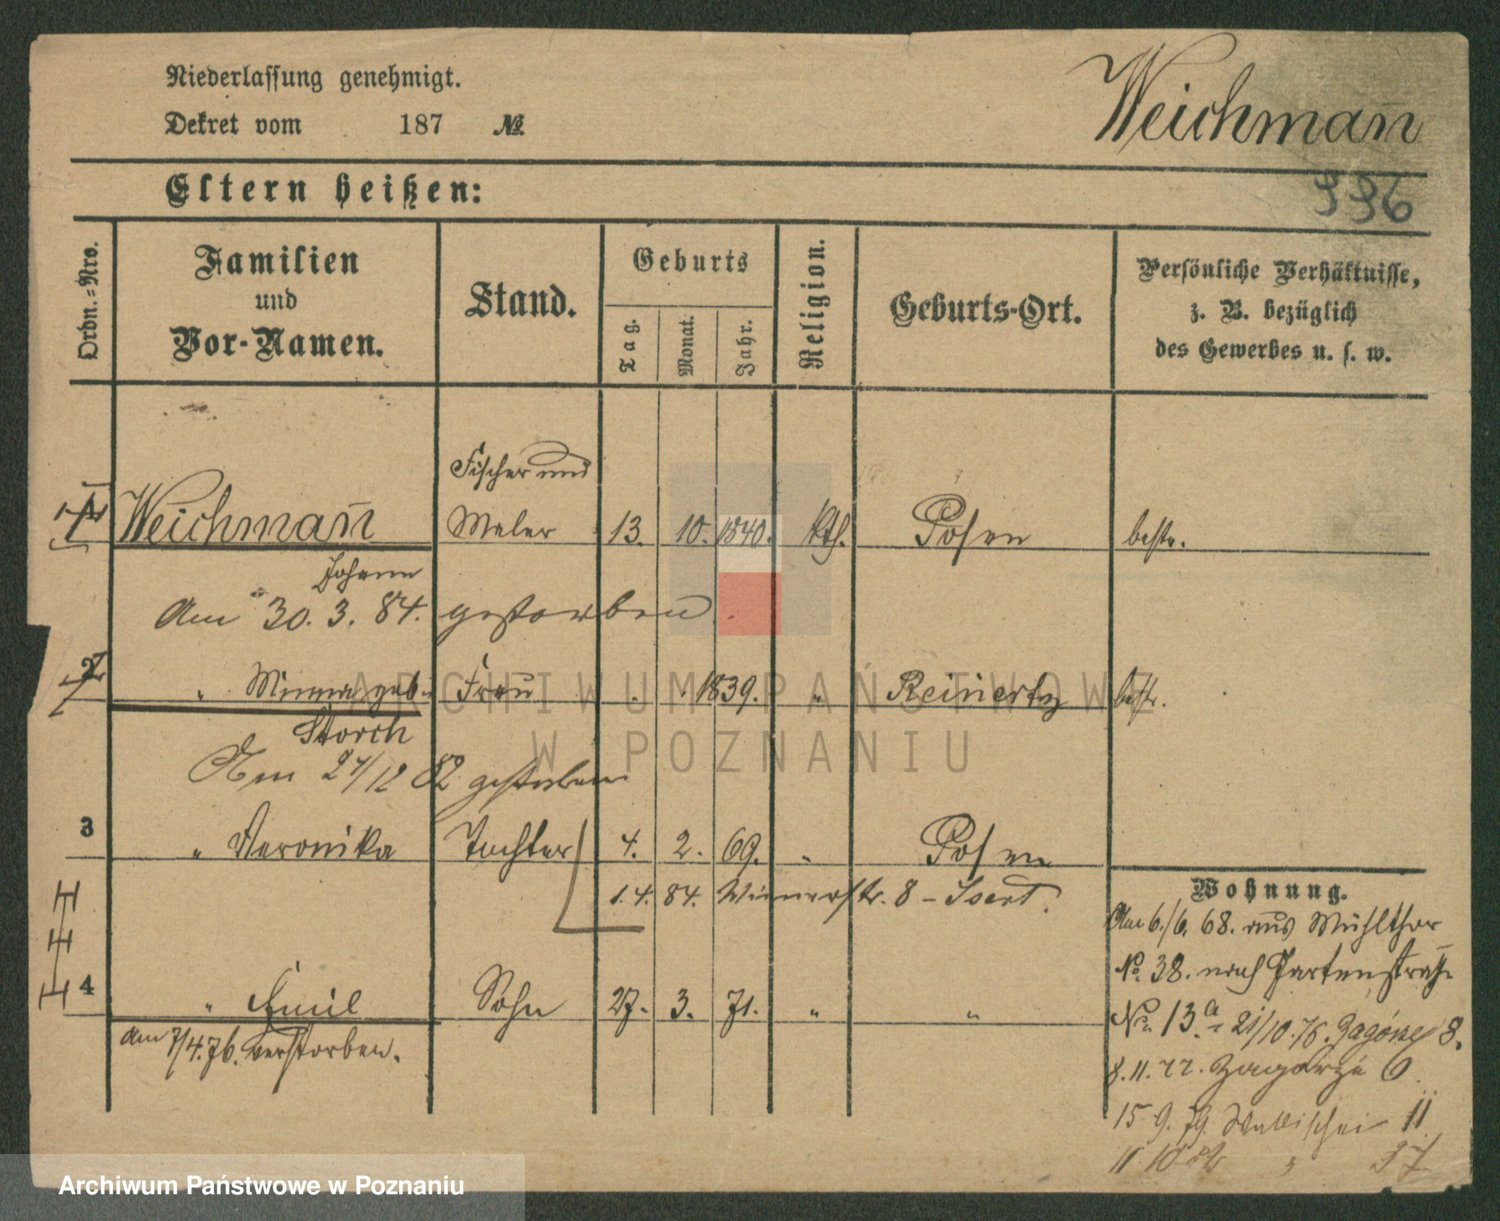 Niederlassung genehmigt.
Dekret vom 187 №
Weichmañ
Eltern heißen:
996
Ordn.=Nro.
Familien
und
Vor-Namen.
Stand.
Geburts
Tag.
Monat.
Jahr.
Religion.
Geburts-Ort.
Persönliche Verhältnisse,
z. B. bezüglich
des Gewerbes u. s. w.
Fischer und
1 Weichmañ Maler 13. 10. 1840. kth. Posen bestr.
Johann
Am 30. 3. 84. gestorben.
2 " Minna geb. Frau " " 1839. " Reinertz bestr.
Storch
Am 27/12 82 gestorben
3 " Veronika Tochter 4. 2. 69. " Posen
1.4. 84. Wienerstr. 8 –
4 " Emil Sohn 27. 3. 71. " "
am 7/4.76. verstorben.
Wohnung.
Am 6./6. 68. aus Mühlthor
No. 38. nach Gartenstraße
No. 13a 21/10.76. Zagórze 8.
8.11.77. Zagorze 6.
15 9. 79. Wallischei 11
11 10 " 37
ARCHIWUM PAŃSTWOWE
W POZNANIU
Archiwum Państwowe w Poznaniu